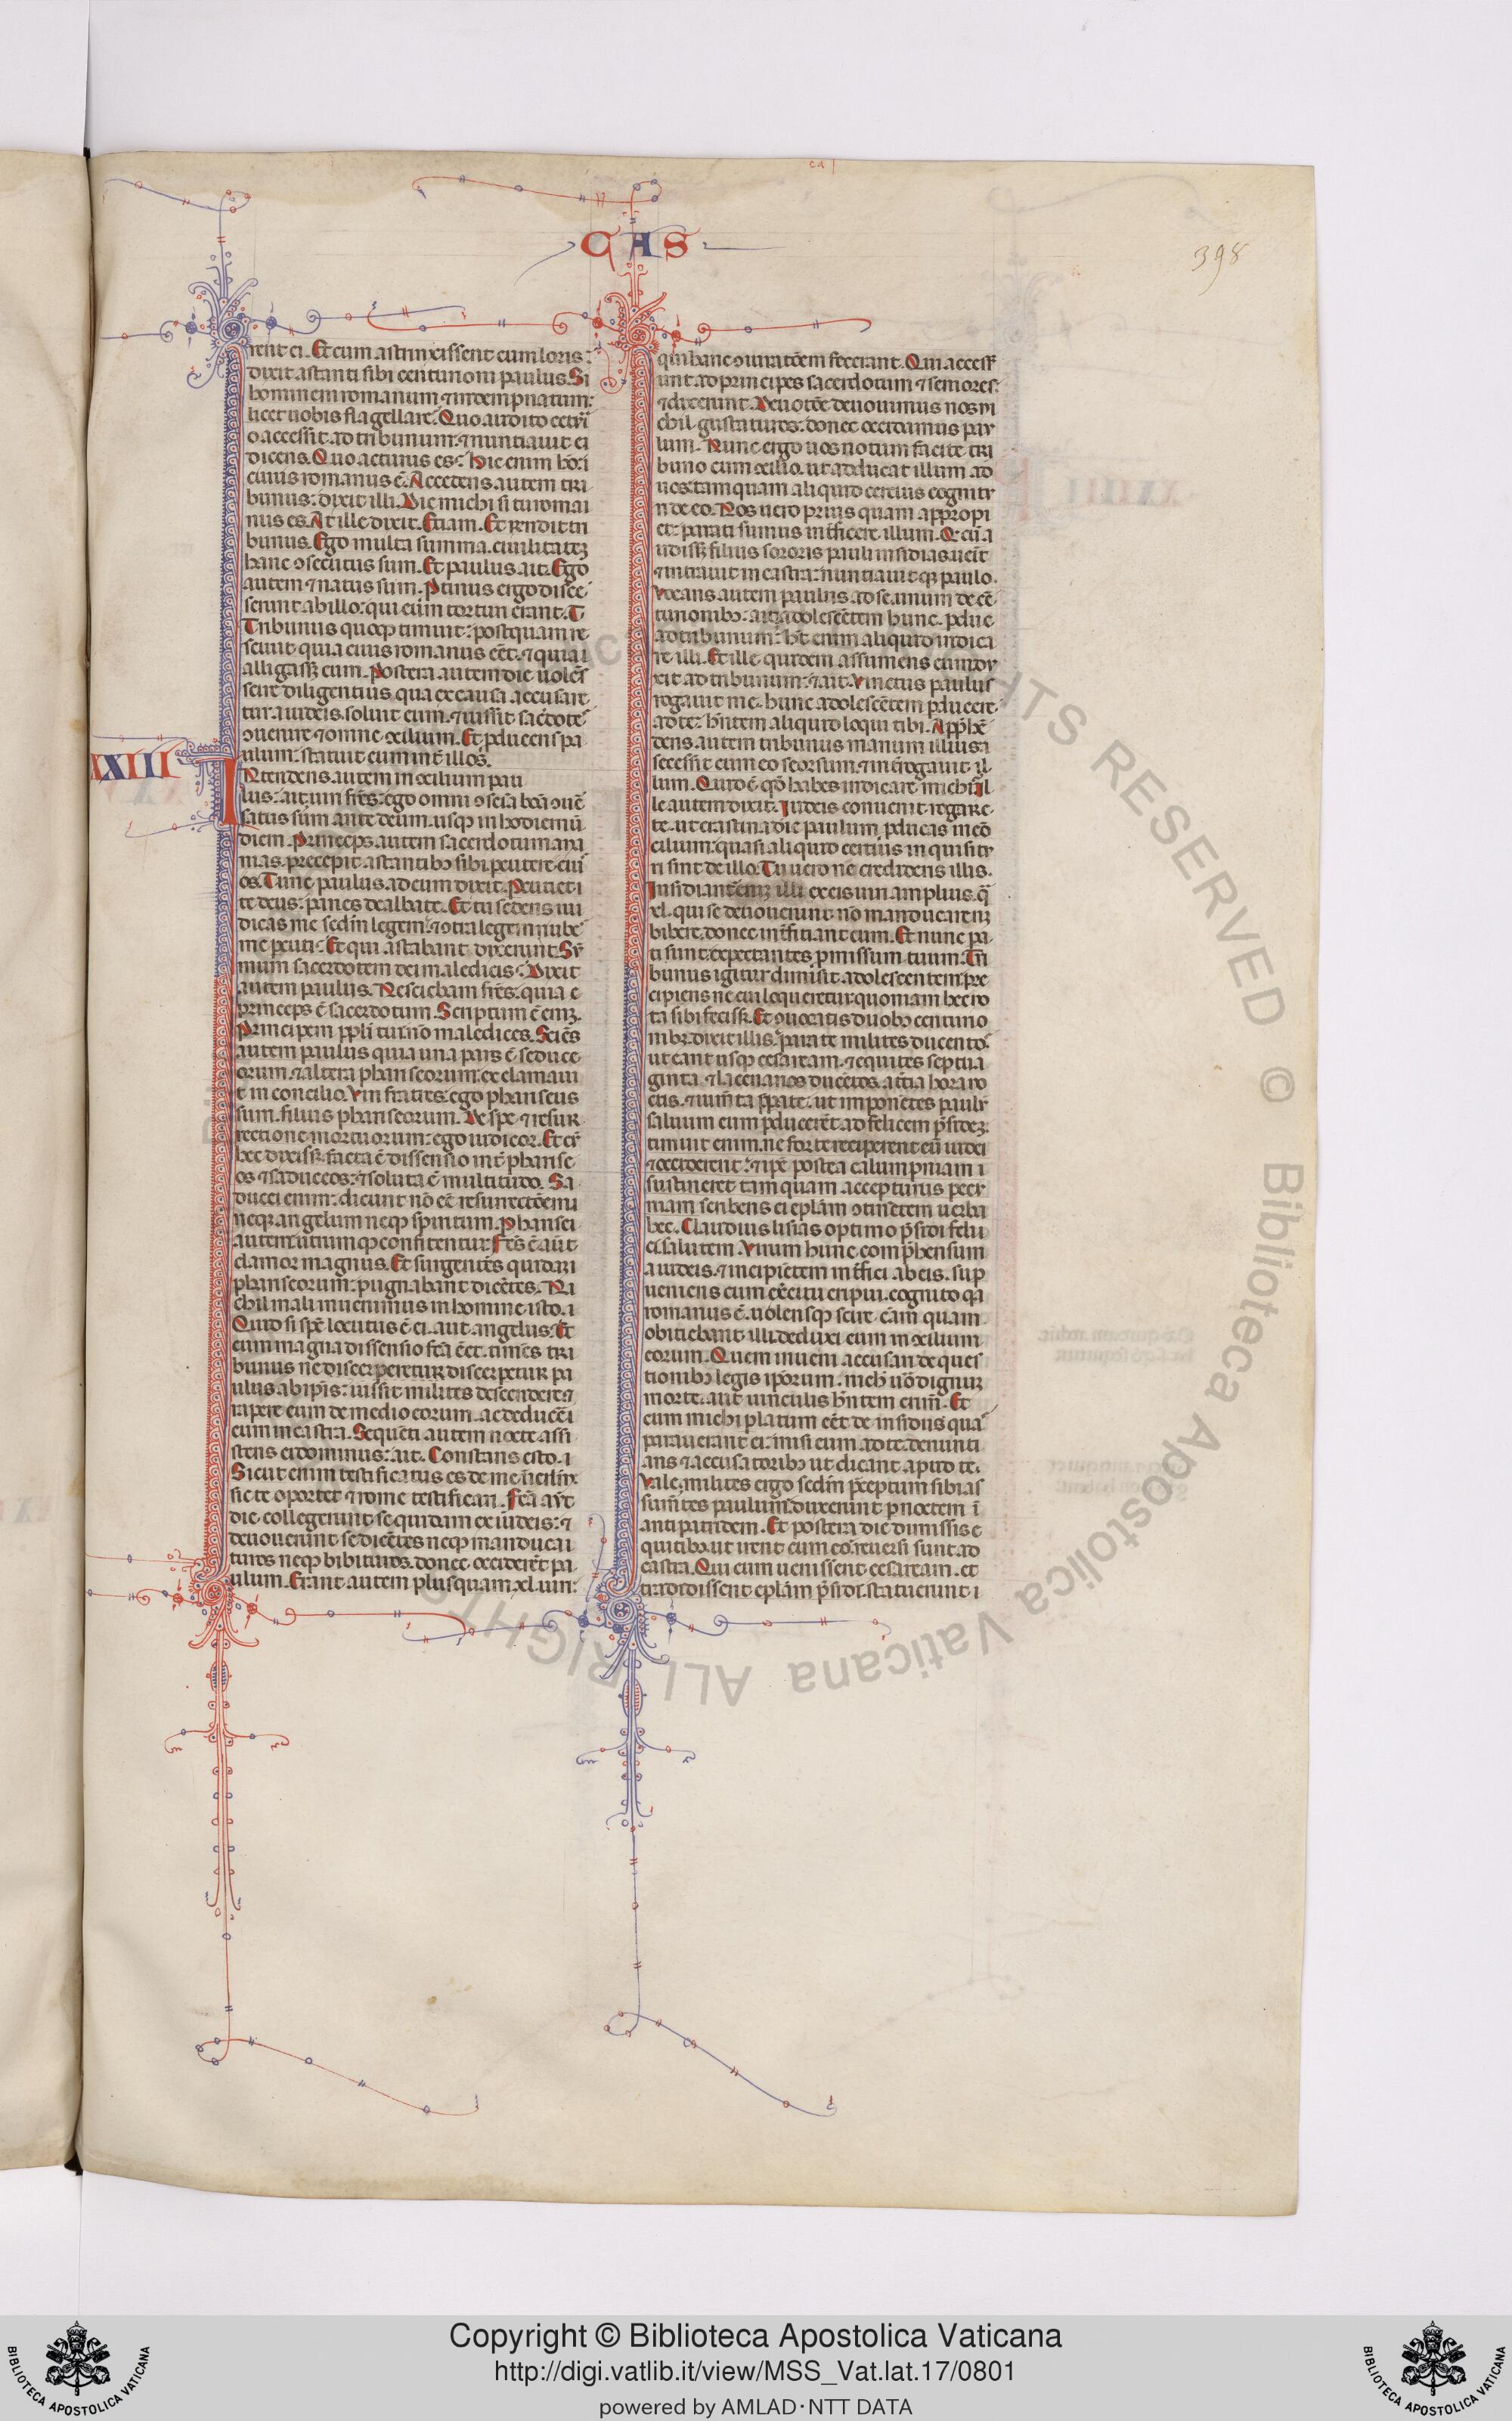 CAS
398
rent ei. Et cum astrinxissent eum loris:
dixit astanti sibi centurioni paulus. Si
hominem romanum ⁊ indempnatum:
licet uobis flagellare. Quo audito cẽtũri
o accessit ad tribunum: ⁊ nuntiauit ei
dicens. Quo acturus es: hic enim hõ: i
ciuis romanus ẽ. Accedens autem tri
bunus: dixit illi. Dic michi si tu romai
nus es. At ille dixit. Etiam. Et rñndit tri
bunus. Ego multa summa. ciuilitatẽ
hanc ↄsecutus sum. Et paulus ait. Ego
autem ⁊ natus sum. Ptinus ergo disces
serunt ab illo: qui eum torturi erant. T
Tribunus quoqꝫ timuit: postquam re
sciuit quia ciuis romanus eẽt: ⁊ quia i
alligasset eum. Postera autem die uolẽs
scire diligentius, qua ex causa accusare
tur a iudeis, soluit eum. ⁊ iussit sacẽdotes
ↄuenire ⁊ omne ↄcilium. Et pducens pa
ulum: statuit eum int̃ illos.
XXIII
INtendens autem in ↄcilium pau
lus: ait. uiri frẽs: ego omni ↄsciã bõã ↄuẽ
satus sum ante deum. usqꝫ in hodiernũ
diem. Princeps autem sacerdotum ana
nias. precepit astantibꝫ sibi pcutere eiꝰ
os. Tunc paulus ad eum dixit. Pcutiet i
te deus: paries dealbate. Et tu sedens iu
dicas me sedm legem: ⁊ ↄtra legem iube
me pcuti: Et qui astabant dixerunt. Sũ
mum sacerdotem dei maledicis: Dixit
autem paulus. Nesciebam frẽs: quia e
princeps ẽ sacerdotum. Scriptum ẽ enĩ.
Principem ppli tui: nõ maledices. Sciẽs
autem paulus quia una pars ẽ seducc
eorum. ⁊ altera phariseorum: exclamaui
t in concilio. Viri fratres: ego phariseus
sum. filius phariseorum. De spe ⁊ resur
rectione mortuorum: ego iudicor. Et cũ
hec dixisset: facta ẽ dissensio int̃ pharise
os ⁊ saduceos: ⁊ soluta ẽ multitudo. Sa
ducei enim: dicunt nõ eẽ resurrectõem
neqꝫ angelum neqꝫ spiritum. Pharisei
autem: utrumqꝫ confitentur. Fcũs ẽ aut̃
clamor magnus. Et surgentes quidam
phariseorum: pugnabant dicẽtes. Ni
chil mali inuenimus in homine isto. i
Quid si spc̃ locutus ẽ ei. aut angelus: Et
cum magna dissensio fcã eẽt: timẽs tri
bunus ne discerperetur discerpetur pa
ulus ab ipis: iussit milites descendere ⁊
rapere eum de medio eorum. ac deducẽ i
eum in castra. Sequẽti autem nocte assi
stens ei dominus: ait. Constans esto. i
Sicut enim testificatus es de me ĩ ierlm̃:
sic te oportet ⁊ rome testificari. Fcã aut̃
die. collegerunt se quidam ex iudeis: ⁊
deuouerunt se dicẽtes neqꝫ manducai
turos neqꝫ bibituros. donec occiderẽt pa
ulum. Erant autem plusquam xl. uiri:
qui hanc ↄiuratõem fecerant. Qui access̃
unt ad principes sacerdotum ⁊ seniores:
⁊ dixerunt. Deuotõe deuouimus nos ni
chil gustaturos: donec occidamus pau
lum. Nunc ergo uos notum facite tri
buno cum ↄcilio. ut adducat illum ad
uos. tamquam aliquid certius cognitu
ri de eo. Nos uero prius quam appropi
et: parati sumus int̃ficere illum. Q cũ a
udisset filius sororis pauli insidias: ueit̃
⁊ intrauit in castra: nuntiauitqꝫ paulo.
Vocans autem paulus ad se unum de cẽ
turionibꝫ: ait. adolescẽtem hunc. pduc
ad tribunum: ht̃ enim aliquid indica
re illi. Et ille quidem assumens eum: du
xit ad tribunum: ⁊ ait. Vinctus paulus
rogauit me. hunc adolescẽtem pducere
ad te: hñtem aliquid loqui tibi. Apphẽ
dens autem tribunus manum illius: a
secessit cum eo seorsum. ⁊ int̃rogauit il
lum. Quid ẽ qd habes indicare michi. Il
le autem dixit. Iudeis conuenit rogare
te. ut crastina die paulum pducas in cõ
cilium: quasi aliquid certius inquisitu
ri sint de illo. Tu uero ne credideris illis.
Insidiantur enĩ illi ex eis uiri amplius. q̃
xl. qui se deuouerunt nõ manducare nꝫ
bibere. donec int̃ficiant eum. Et nunc pa
ti sunt: expectantes pmissum tuum. Tri
bunus igitur dimisit adolescentem: pre
cipiens ne cui loqueretur: quoniam hec no
ta sibi fecisset. Et ↄuocatis duobꝫ centurio
nibꝫ. dixit illis. parate milites ducentos
ut eant usqꝫ cesaream. ⁊ equites septua
ginta. ⁊ lacenarios ducẽtos. a tcia hora no
ctis. ⁊ iumta ppate. ut imponẽtes paulũ
saluum eum pducerẽt ad felicem psidẽ.
timuit enim. ne forte reciperent eũ iudei
⁊ occiderent: ⁊ ipẽ postea calumpniam i
sustineret. tamquam accepturus pecu
niam. scribens ei eplãm ↄtinẽtem uerba
hec. Claudius lisias optimo psidi felii
ci salutem. Virum hunc comphensum
a iudeis. ⁊ incipiẽtem int̃fici ab eis. sup
ueniens cum ex̃ercitu eripui. cognito qa
romanus ẽ. uolensqꝫ scire cãm quam
obiciebant illi. deduxi eum in ↄcilium
eorum. Quem inueni accusari de ques
tionibꝫ legis ipsorum. nich uõ dignum
morte. aut uinculis hñtem crimẽ. Et
cum michi platum eẽt de insidiis quas
parauerant ei: misi eum ad te. denunti
ans ⁊ accusatoribꝫ ut dicant apud te.
Vale. milites ergo sedm pceptum sibi as
sumẽtes paulum. duxerunt p noctem ĩ
antipatridem. Et postera die dimissis e
quitibꝫ ut irent cum eo: reuersi sunt ad
castra. Qui cum uenissent cesaream. et
tradidissent eplãm psidi. statuerunt i
Copyright © Biblioteca Apostolica Vaticana
http://digi.vatlib.it/view/MSS_Vat.lat.17/0801
powered by AMLAD·NTT DATA
BIBLIOTECA APOSTOLICA VATICANA
BIBLIOTECA APOSTOLICA VATICANA